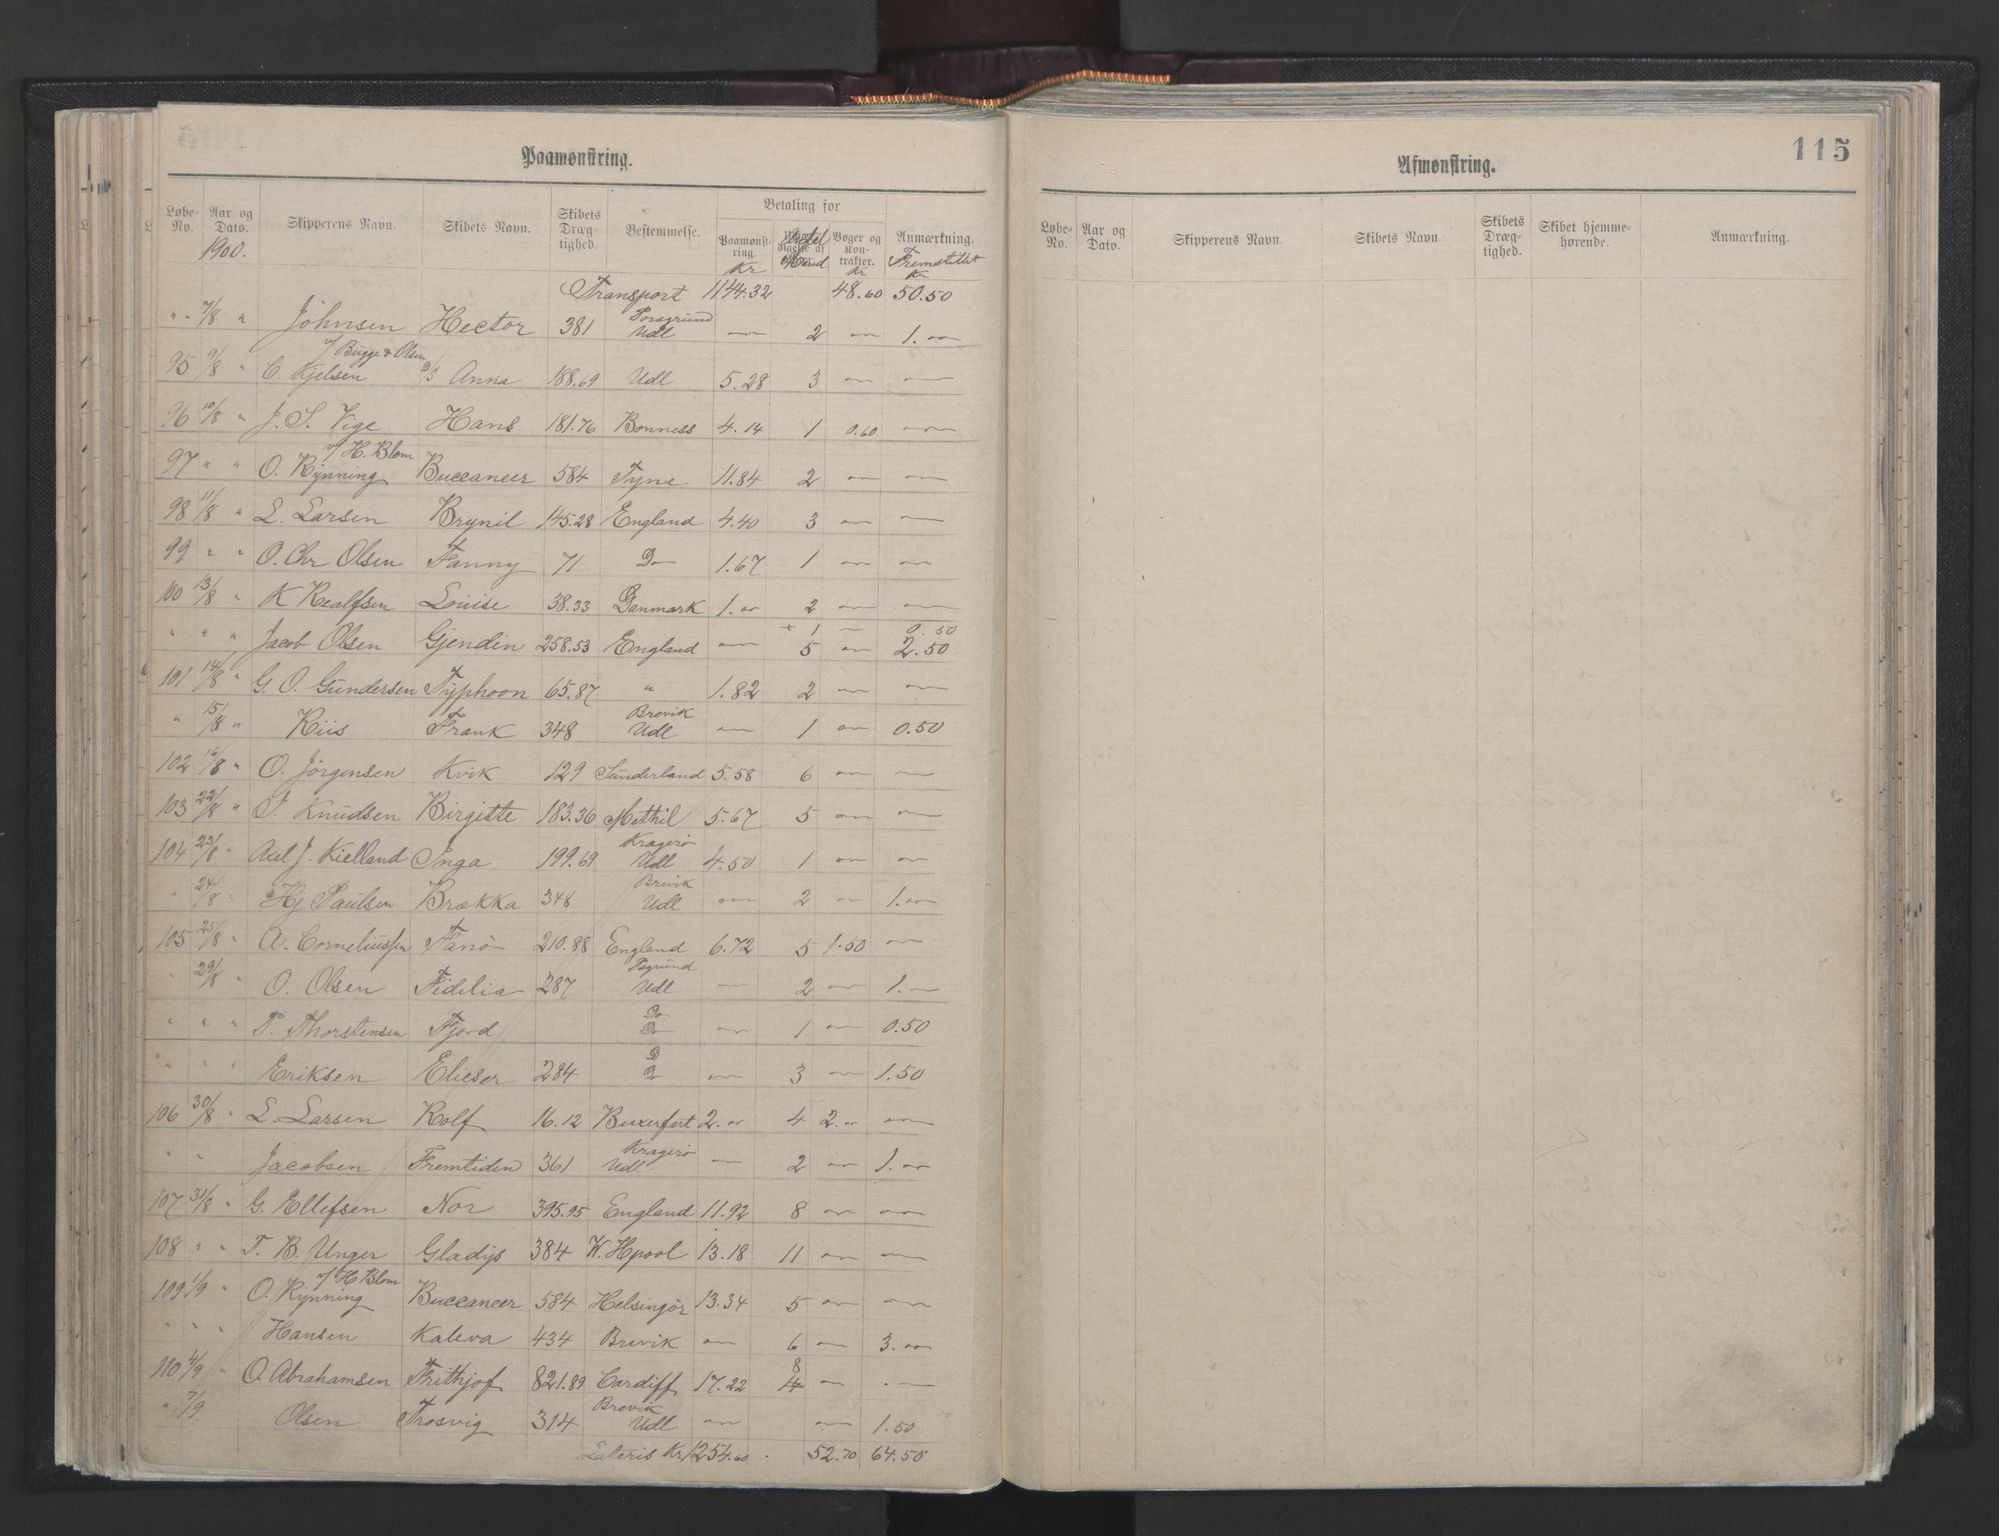 Paamønstring.
Løbe-No. Aar og Dato. Skipperens Navn. Skibets Navn. Skibets Dræg-tighed. Bestemmelse. Betaling for Anmærkning.
Paamønst-ring. Antal Mand Bøger og Kon-trakter. Fremstillet
1900. Kr Kr Kr
Transport 1144.32 48.60 50.50
" - 7/8 " Johnsen Hector 381 Porsgrund Udl — 2 — 1.00
95 9/8 " C. Kjelsen v/ Bugge & Olsen D/S Anna 188.69 Udl 5.28 3 — —
96 10/8 " J. S. Vige Hans 181.76 Bonness 4.14 1 0.60 —
97 " " O. Rynning v/ H. Blom Buccaneer 584 Tyne 11.84 2 — —
98 11/8 " L. Larsen Brynil 145.28 England 4.40 3 — —
99 " " O. Chr Olsen Fanny 71 Do 1.67 1 — —
100 13/8 " K Realfsen Louise 38.33 Danmark 1.00 2 — —
+ 1 — 0.50
" " " Jacob Olsen Gjendin 258.53 England — 5 — 2.50
101 14/8 " G. O. Gundersen Typhoon 65.87 " 1.82 2 — —
" 15/8 " Riis Frank 348 Brevik Udl — 1 — 0.50
102 16/8 " O. Jörgensen Kvik 129 Sunderland 5.58 6 — —
103 22/8 " T. Knudsen Birgitte 183.36 Methil 5.67 5 — —
104 23/8 " Axel J. Kielland Inga 199.69 Kragerö Udl 4.50 1 — —
" 24/8 " Hj Paulsen Brækka 348 Brevik Udl — 2 — 1.00
105 25/8 " A. Corneliussen Fanö 210.88 England 6.72 5 1.50 —
" 29/8 " O. Olsen Fidelia 287 Psgrund Udl — 2 — 1.—
" " " T. Thorstensen Fjord Do Do — 1 — 0.50
" " " Eriksen Elieser 284 D D — 3 — 1.50
106 30/8 " L. Larsen Rolf 16.12 Buxerfart 2.00 4 2.00 —
" " Jacobsen Fremtiden 361 Kragerö Udl — 2 — 1.00
107 31/8 " G. Ellefsen Nor 395.95 England 11.92 8 — —
108 " " T. B. Unger Gladys 384 W. Hpool 13.18 11 — —
109 1/9 " O. Rynning v/ H Blom Buccaneer 584 Helsingör 13.34 5 — —
" " " Hansen Kaleva 434 Brevik — 6 — 3.00
110 4/9 " O. Abrahamsen Frithjof 821.89 Cardiff 17.22 8 4 — —
" 7/9 Olsen Trosvig 314 Brevik Udl — — 1.50
Lateris Kr 1254.60 52.70 64.50
115
Afmønstring.
Løbe-No. Aar og Dato. Skipperens Navn. Skibets Navn Skibets Dræg-tighed. Skibet hjemme-hørende. Anmærkning.